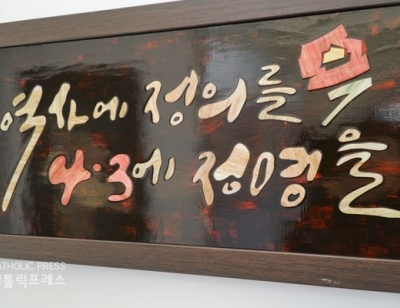 역사에 정의를
4·3에 정명을
ATHOLIC PRESS
톨릭프레스